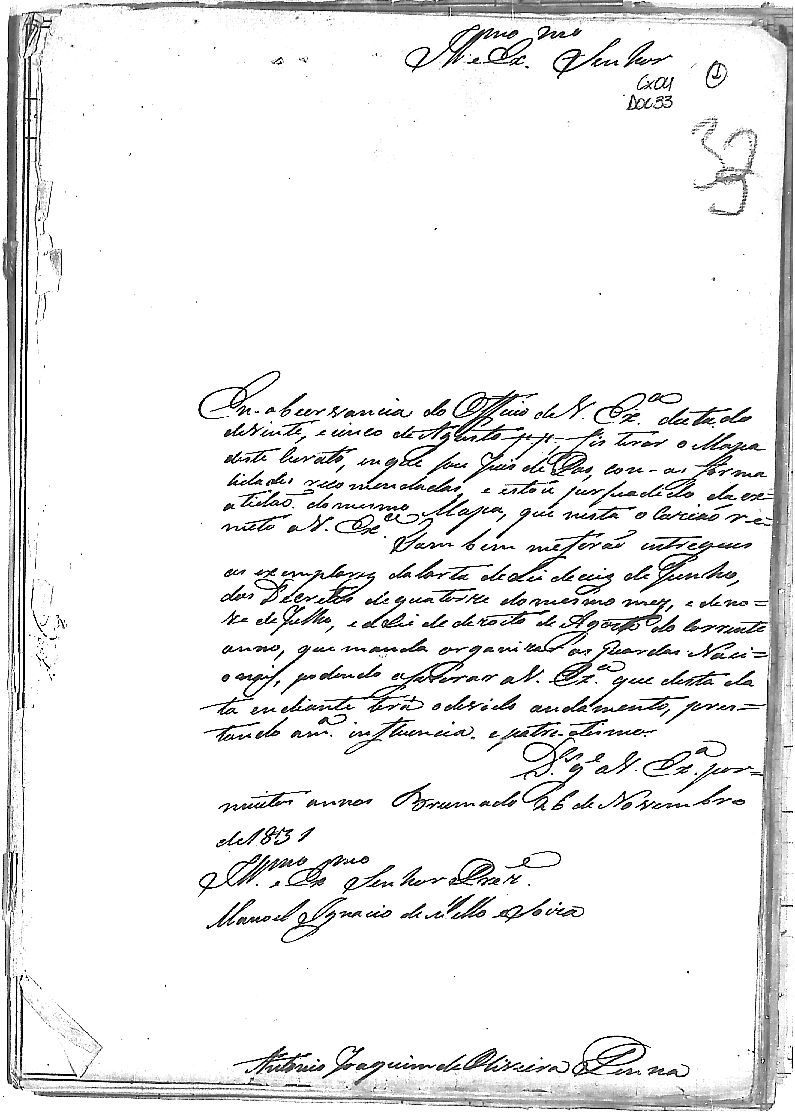 Illmo e Exmo Senhor
CX04
DOC 33
1
33
Em observancia do Officio de V. Exa. datado
de vinte, e cinco de Agosto pp., fis tirar o Mapa
deste Curato, em que sou Juis de Pas, com as forma
lidades recomendadas, e estou persuadido da ex=
atidaõ do mesmo Mapa, que nesta ocaziaõ re=
meto a V. Exca. Tambem me foraõ intregues
os exemplares da Carta de Lei de seis de Junho,
dos Decretos de quatorze do mesmo mez, e de no=
ve de Julho, e a Lei de dezoito de Agosto do corrente
anno, que manda organizar as Guardas Naci=
onais, podendo asseverar a V. Exa. que desta da
ta em diante terá o devido andamento, pres=
tando a ma. influencia, e patriotismo.
Ds. ge. a V. Exa. por=
muitos annos Brumado 26 de Novembro
de 1831
Illmo. e Exmo Senhor Preze.
Manoel Ignacio de Mello e Soiza
Antonio Joaquim de Oliveira Penna